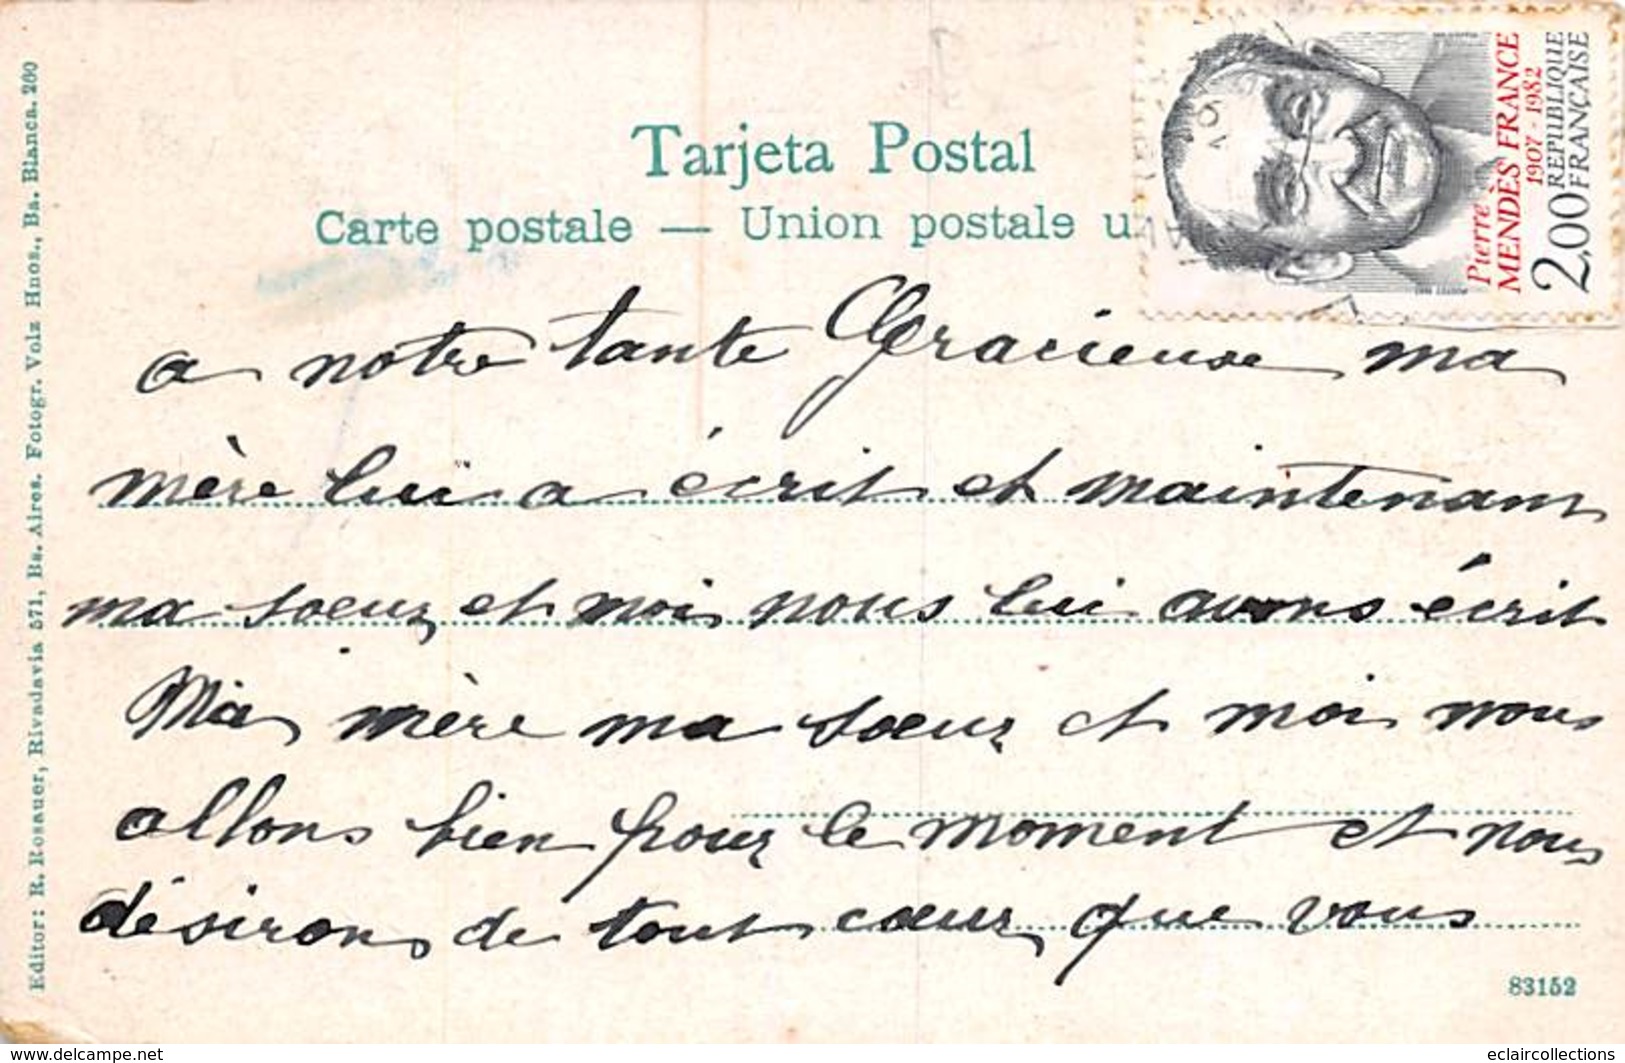 Tarjeta Postal
Carte postale — Union postale u
Pierre
MENDÈS FRANCE
1907 - 1982
2,00 REPUBLIQUE
FRANÇAISE
a notre tante Gracieuse ma
mère lui a écrit et maintenant
ma soeur et moi nous lui avons écrit
Ma mère ma soeur et moi nous
allons bien pour le moment et nous
désirons de tout coeur que vous
Editor: R. Rosauer, Rivadavia 571, Bs. Aires. Fotogr. Volz Hnos., Ba. Blanca. 260
83152
www.delcampe.net
eclaircollections